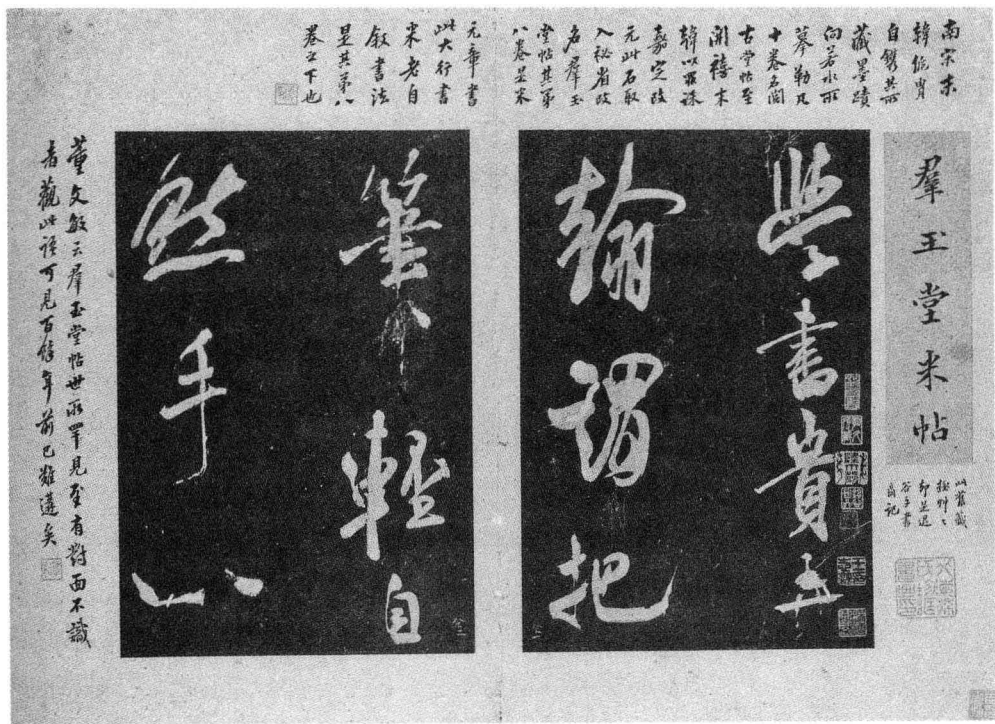 南宋末
韓侂冑
自鐫其所
藏墨蹟
向若水所
摹勒凡
十卷名閲
古堂帖至
開禧末
韓以罪誅
嘉定改
元此石取
入秘省改
名羣玉
堂帖其第
八卷是米
元章書
此大行書
米老自
敘書法
是其第八
卷之下也
羣玉堂米帖
谷手書
學書貴弄
翰謂把
筆輕自
然手心
董文敏云羣玉堂帖世所罕見至有對面不識
者觀此語可見百餘年前已難遘矣